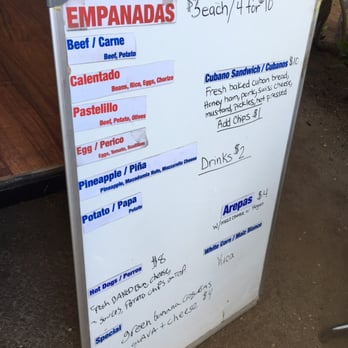 EMPANADAS $3each/4 for $10
Beef / Carne
Beef, Potato
Calentado
Beans, Rice, Eggs, Chorizo
Pastelillo
Beef, Potato, Olives
Egg / Perico
Eggs, Tomato, Scallions
Pineapple / Piña
Pineapple, Macadamia Nuts, Mozzarella Cheese
Potato / Papa
Potato
Hot Dogs / Perros $8
Fresh BAKED Bun, cheese,
sauces, Potato chips on top
Special
green banana
GUAVA + CHEESE $4
Cubano Sandwich / Cubanos $10
Fresh baked cuban bread,
Honey ham, pork, swiss cheese,
mustard, pickles, hot pressed
Add Chips $1
Drinks $2
Arepas $4
White Corn / Maiz Blanco
Yuca